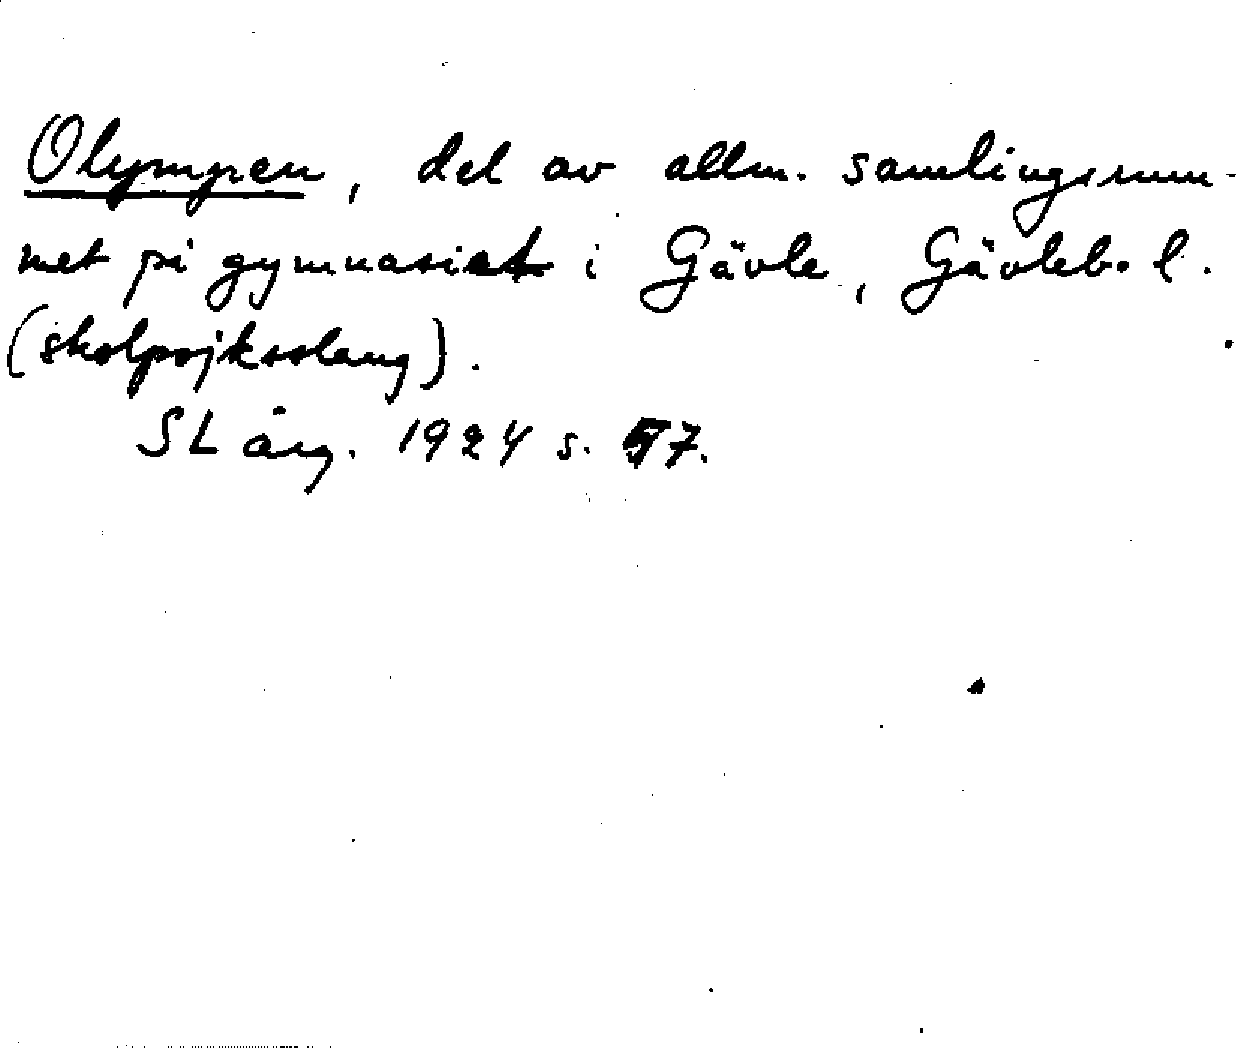 Olympen, del av allm. samlingsrum-
met på gymnasiet i Gävle, Gävleb. l.
(skolpojksslang).
SL årg. 1924 s. 57.